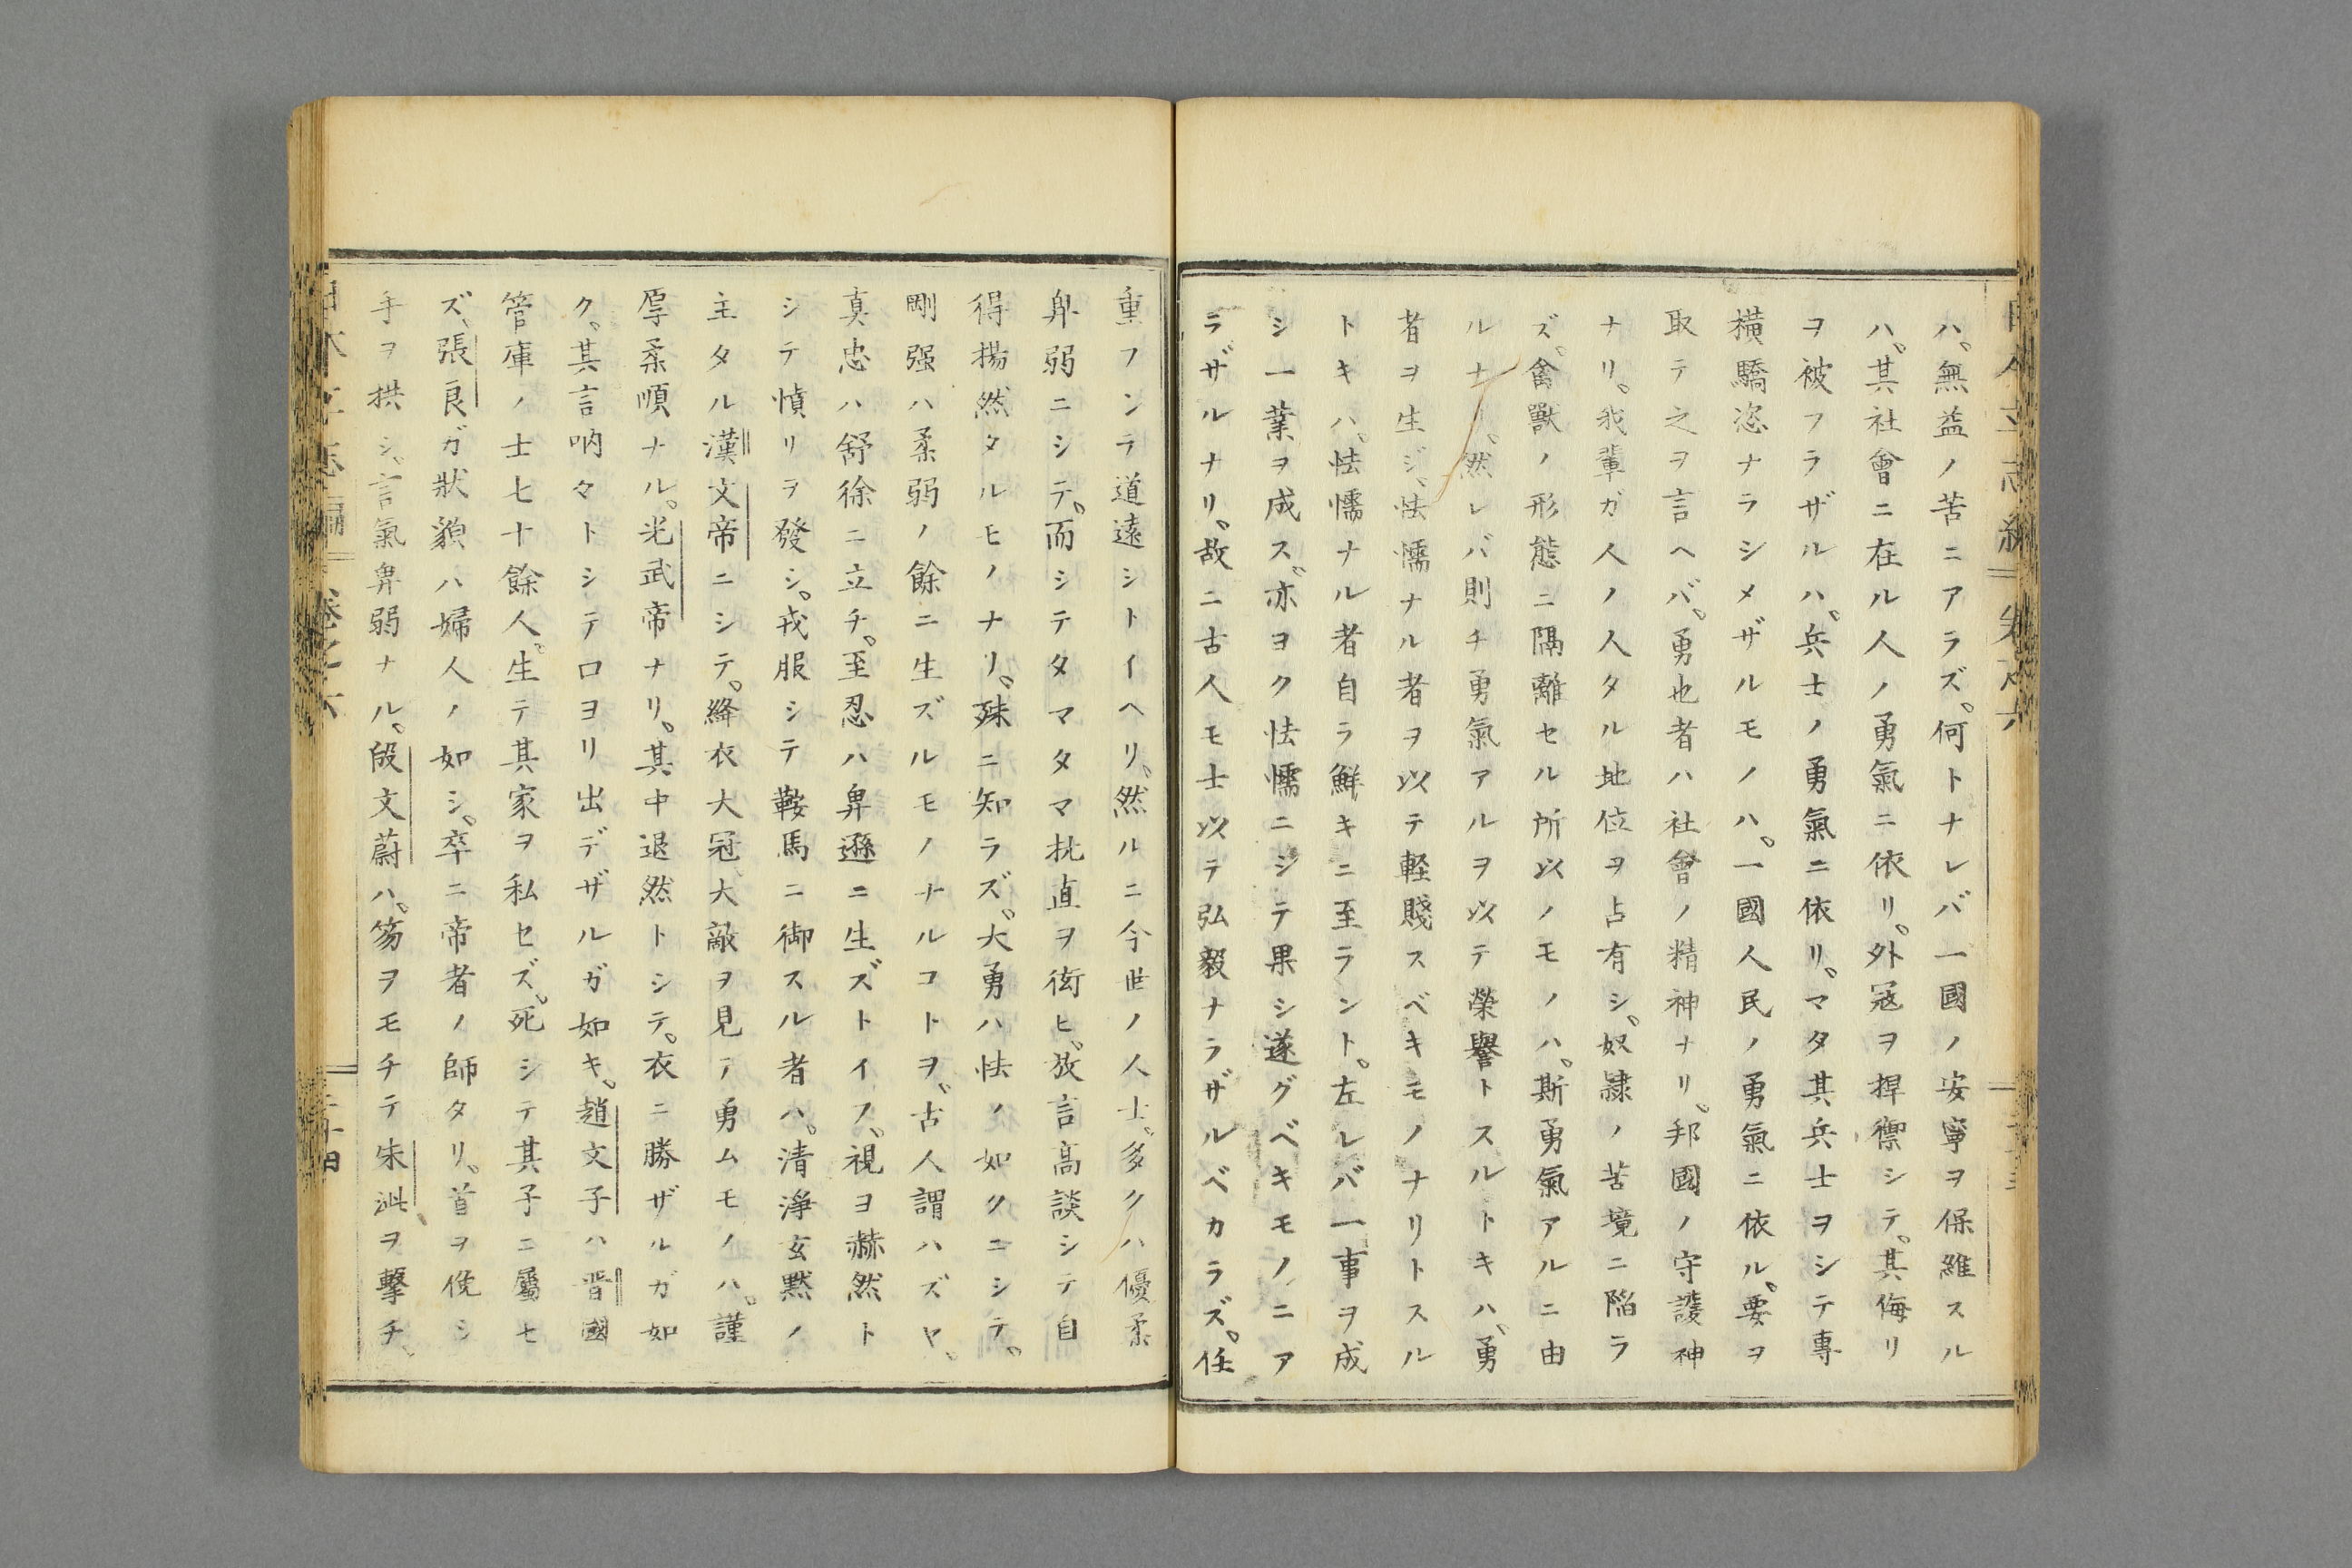 ハ、無益ノ苦ニアラズ。何トナレバ一國ノ安寧ヲ保維スル
ハ、其社會ニ在ル人ノ勇氣ニ依リ。外冦ヲ捍禦シテ、其侮リ
ヲ被フラザルハ、兵士ノ勇氣ニ依リ。マタ其兵士ヲシテ專
横驕恣ナラシメザルモノハ。一國人民ノ勇氣ニ依ル。要ヲ
取テ之ヲ言ヘバ。勇也者ハ社會ノ精神ナリ。邦國ノ守護神
ナリ。我輩ガ人ノ人タル地位ヲ占有シ。奴隷ノ苦境ニ陷ラ
ズ。禽獸ノ形態ニ隔離セル所以ノモノハ。斯勇氣アルニ由
ルナリ。然レバ則チ勇氣アルヲ以テ榮譽トスルトキハ、勇
者ヲ生ジ、怯懦ナル者ヲ以テ軽賤スベキモノナリトスル
トキハ、怯懦ナル者自ラ鮮キニ至ラント。左レバ一事ヲ成
シ一業ヲ成ス。亦ヨク怯懦ニシテ果シ遂グベキモノニア
ラザルナリ。故ニ古人モ士以テ弘毅ナラザルベカラズ。任
重フンテ道遠シトイヘリ。然ルニ今世ノ人士。多クハ優柔
卑弱ニシテ。而シテタマタマ抗直ヲ衒ヒ。放言高談シテ自
得揚然タルモノナリ。殊ニ知ラズ。大勇ハ怯ノ如クニシテ。
剛强ハ柔弱ノ餘ニ生ズルモノナルコトヲ。古人謂ハズヤ。
真忠ハ舒徐ニ立チ。至忍ハ卑遜ニ生ズトイフ。視ヨ赫然ト
シテ憤リヲ發シ。戎服シテ鞍馬ニ御スル者ハ。清淨玄黙ノ
主タル漢文帝ニシテ。絳衣大冠。大敵ヲ見テ勇ムモノハ。謹
厚柔順ナル。光武帝ナリ。其中退然トシテ。衣ニ勝ザルガ如
ク。其言吶々トシテ口ヨリ出デザルガ如キ。趙文子ハ晋國
管庫ノ士七十餘人。生テ其家ヲ私セズ。死シテ其子ニ屬セ
ズ、張良ガ狀貌ハ婦人ノ如シ。卒ニ帝者ノ師タリ。首ヲ俛シ
手ヲ拱シ。言氣卑弱ナル。段文蔚ハ。笏ヲモチテ朱泚ヲ擊チ。